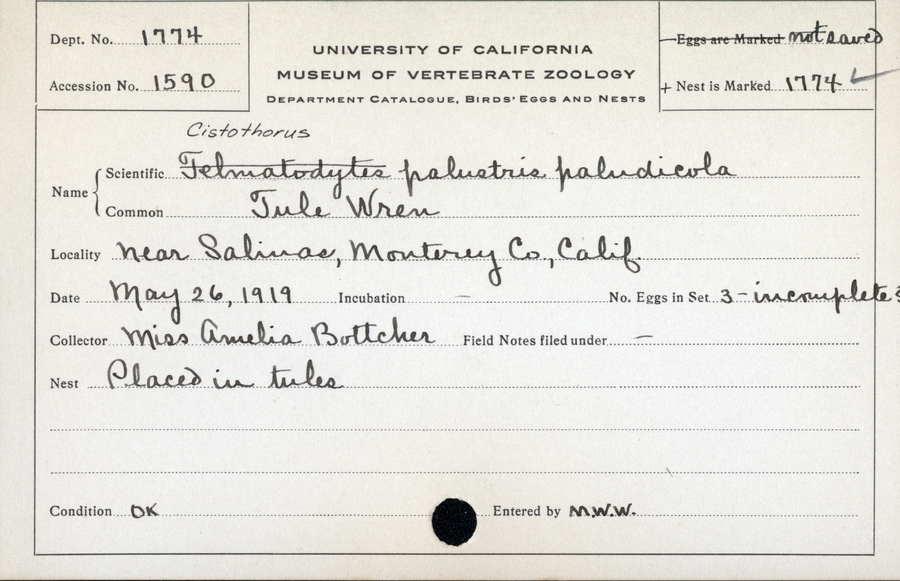 Dept. No. 1774
Accession No. 1590
UNIVERSITY OF CALIFORNIA
MUSEUM OF VERTEBRATE ZOOLOGY
DEPARTMENT CATALOGUE, BIRDS' EGGS AND NESTS
Eggs are Marked not saved
+ Nest is Marked 1774 ✓
Cistothorus
Name { Scientific Telmatodytes palustris paludicola
Common Tule Wren
Locality near Salinas, Monterey Co., Calif.
Date May 26, 1919 Incubation — No. Eggs in Set 3 - incomplete
Collector Miss Amelia Bottcher Field Notes filed under —
Nest Placed in tules
Condition OK Entered by M.W.W.